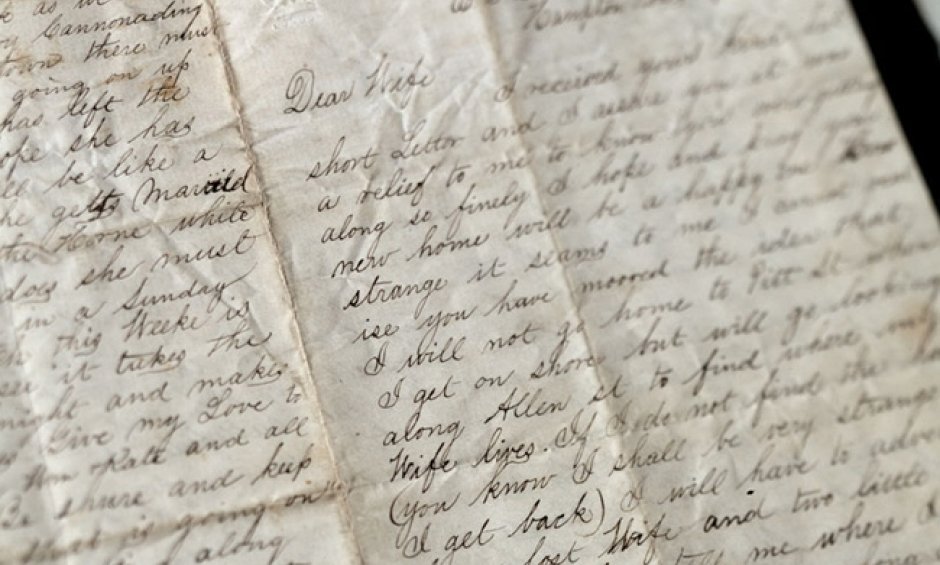 as we
Cannonading
town there must
going on up
has left the
ope she has
ll be like a
he gets Mariiled
the Horne while
does she must
in a Sunday
this Weeke is
it takes the
might and makes
Give my Love to
Wm Kate and all
Be shure and keep
is going on
along
Hampton
Dear Wife I received your
short Letter and I assure you it
a relief to me to know you
along so finely I hope and
new home will be a happy
strange it seams to me I
ise you have mooved the idea that
I will not go home to Pitt St
I get on shore but will go looking
along Allen st to find where my
Wife lives. If I do not find the
(you know I shall be very strange
I get back) I will have to adve
lost Wife and two little
me where I